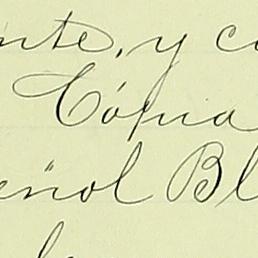 nte, y c
Copia
eñol Bl